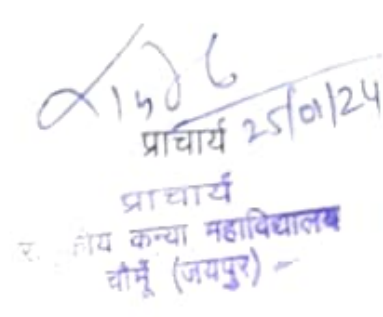 प्राचार्य 25/01/24
प्राचार्य
कन्या महाविद्यालय
चौमूँ (जयपुर)